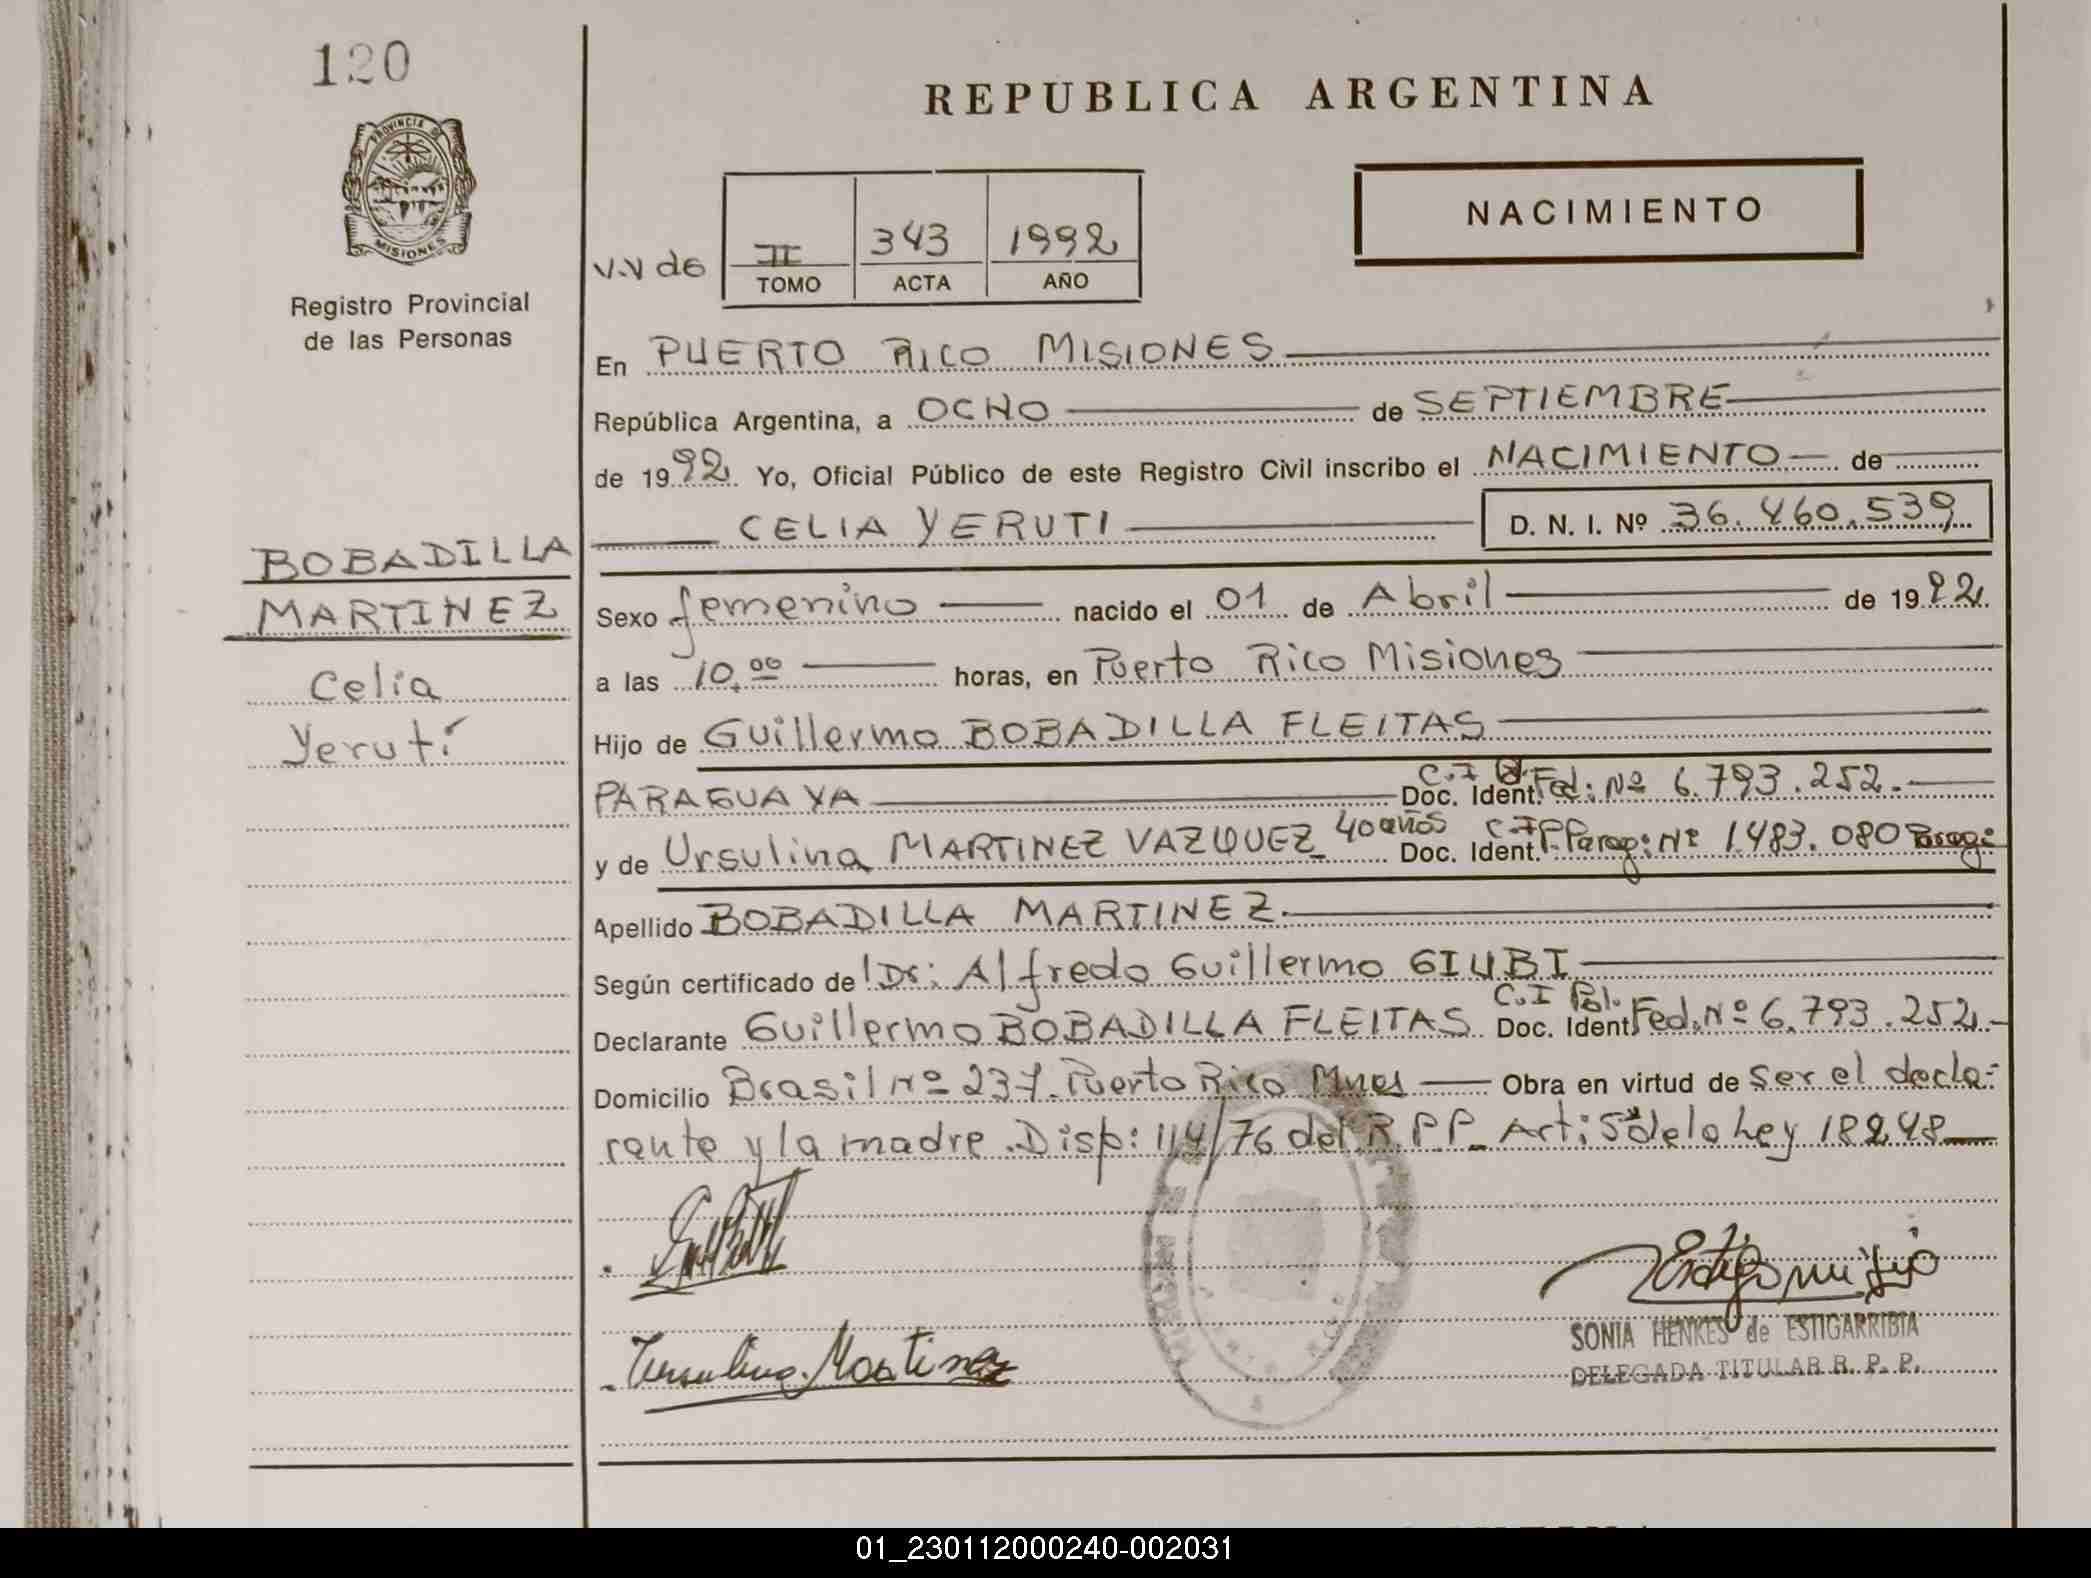 120
PROVINCIA DE
MISIONES
Registro Provincial
de las Personas
REPUBLICA ARGENTINA
NACIMIENTO
V.V de
II 343 1992
TOMO ACTA AÑO
En PUERTO RICO MISIONES
República Argentina, a OCHO de SEPTIEMBRE
de 1992 Yo, Oficial Público de este Registro Civil inscribo el NACIMIENTO de
CELIA YERUTI D. N. I. Nº 36.460.539
BOBADILLA
MARTINEZ
Celia
Yerutí
Sexo femenino nacido el 01 de Abril de 1992
a las 10,00 horas, en Puerto Rico Misiones
Hijo de Guillermo BOBADILLA FLEITAS
PARAGUAYA Doc. Ident. C.I Fed: Nº 6.793.252.
y de Ursulina MARTINEZ VAZQUEZ 40 años Doc. Ident. C.I P. Parag: Nº 1483.080
Apellido BOBADILLA MARTINEZ.
Según certificado de Dr: Alfredo Guillermo GIUBI
Declarante Guillermo BOBADILLA FLEITAS Doc. Ident. C.I Pol. Fed. Nº 6.793.252
Domicilio Brasil Nº 237. Puerto Rico Mnes Obra en virtud de ser el decla-
rante y la madre. Disp: 114/76 del R.P.P. Art: 5º de la Ley 18248
Ursulina Martinez
SONIA HENKES de ESTIGARRIBIA
DELEGADA TITULAR R. P. P.
01_230112000240-002031